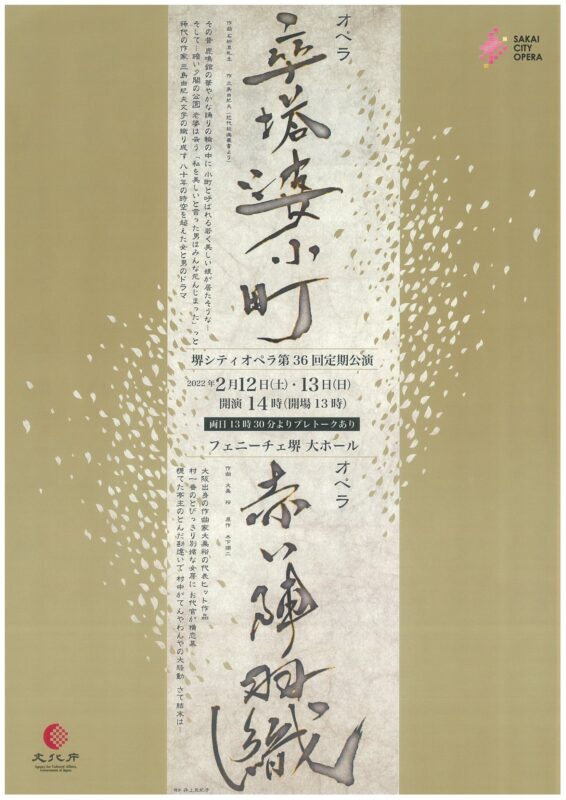 SAKAI
CITY
OPERA
オペラ
卒塔婆小町
作曲 石桁眞礼生　作 三島由紀夫(近代能楽集より)
その昔 鹿鳴館の華やかな踊りの輪の中に 小町と呼ばれる若く美しい娘が居たそうな…
そして…暗い夕闇の公園 老婆は云う「私を美しいと言った男はみんな死んじまった」っと…
稀代の作家 三島由紀夫文学の織り成す 八十年の時空を超えた女と男のドラマ
堺シティオペラ第36回定期公演
2022年2月12日(土)・13日(日)
開演 14時(開場13時)
両日13時30分よりプレトークあり
フェニーチェ堺 大ホール
オペラ
赤い陣羽織
作曲 大栗 裕　原作 木下順二
大阪出身の作曲家大栗裕の代表ヒット作品
村一番のとびっきり別嬪な女房に お代官が横恋慕
慌てた亭主のとんだ勘違いで 村中がてんやわんやの大騒動 さて結末は
文化庁
Agency for Cultural Affairs,
Government of Japan